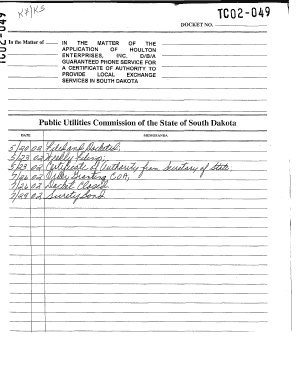 TC02-049
DOCKET NO.
In the Matter of
IN THE MATTER OF THE
APPLICATION OF HOULTON
ENTERPRISES, INC. D/B/A
GUARANTEED PHONE SERVICE FOR
A CERTIFICATE OF AUTHORITY TO
PROVIDE LOCAL EXCHANGE
SERVICES IN SOUTH DAKOTA
TC02-049
Public Utilities Commission of the State of South Dakota
DATE MEMORANDA
5/20 02 Filed and Docketed;
5/23 02 Weekly Filing;
5/23 02 Certificate of Authority from Secretary of State;
7/26 02 Order Granting COA;
7/26 02 Docket Closed.
7/29 02 Surety Bond